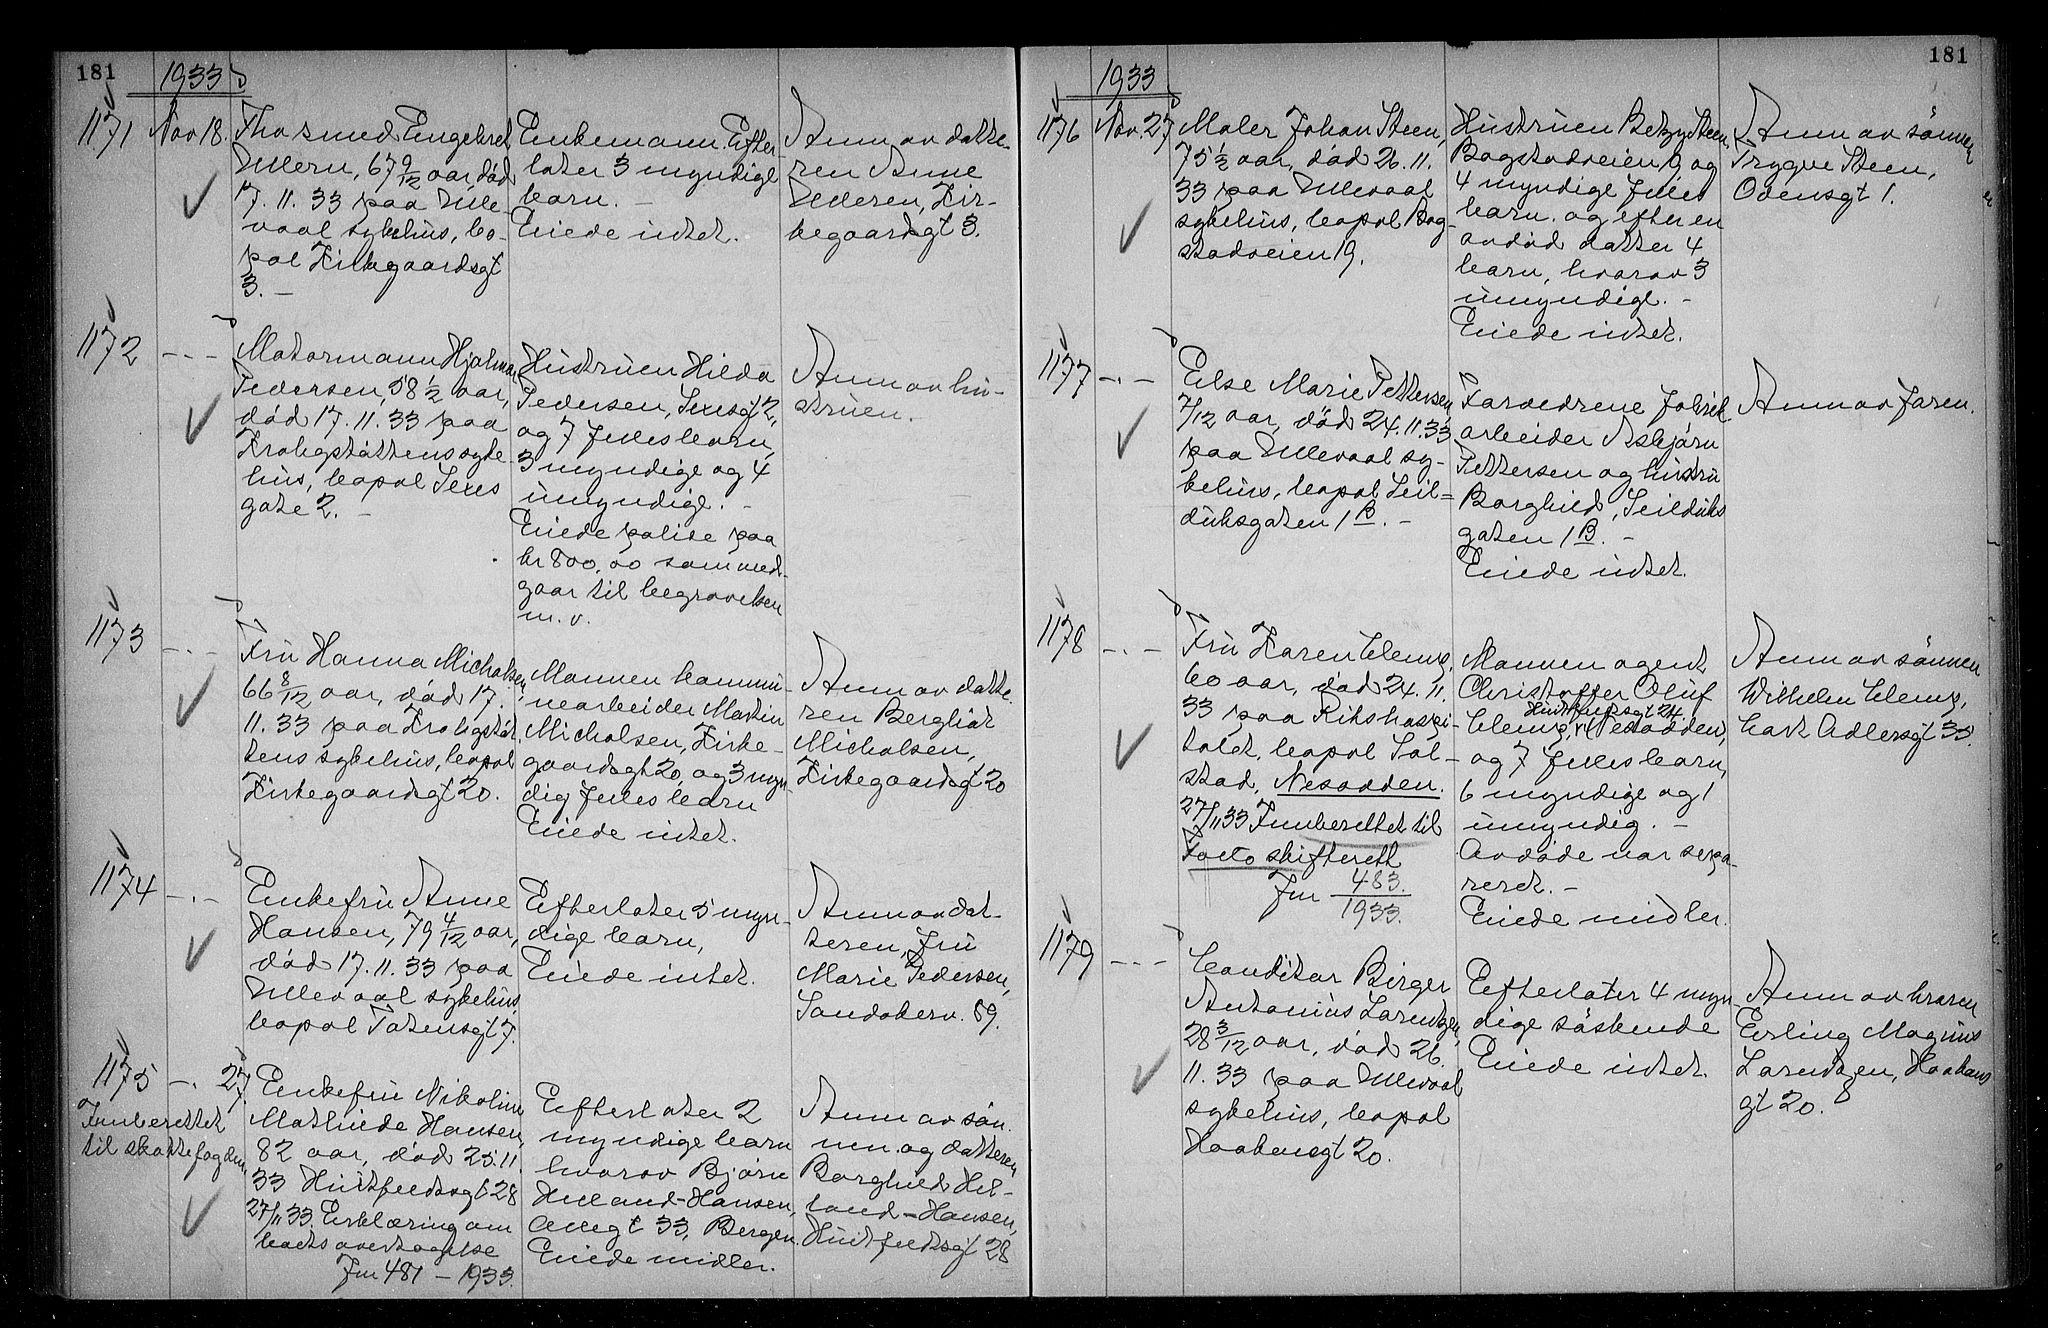 181
1933
1171
Nov 18.
Engebret
Ullern, 67 9/12 aar, død
17.11.33 paa Ulle-
vaal sykehus, bo-
pæl Kirkegaardsgt
3. -
Enkemann. Efter-
later 3 myndige
barn. -
Eiede intet.
Anm av datte-
ren Anne
Ulleren, Kir-
kegaardsgt 3.
1172
- . -
Motormann Hjalmar
Pedersen, 58 1/2 aar,
død 17.11.33 paa
Krohgstøttens syke-
hus, bopæl Sexes
gate 2. -
Hustruen Hilda
Pedersen, Sexesgt 2,
og 7 fælles barn,
3 myndige og 4
umyndige. -
Eiede polise paa
kr 800,00 som med-
gaar til begravelsen
m.v.
Anm av hu-
struen.
1173
- . -
Fru Hanna Micholsen,
66 8/12 aar, død 17.
11.33 paa Krohgstøt-
tens sykehus, bopæl
Kirkegaardsgt 20.
Mannen kommu-
nearbeider Martin
Micholsen, Kirke-
gaardsgt 20, og 3 myn-
dig fælles barn
Eiede intet.
Anm av datte-
ren Bergliot
Micholsen,
Kirkegaardsgt 20
1174
- . -
Enkefru Anne
Hansen, 79 4/12 aar,
død 17.11.33 paa
Ullevaal sykehus,
bopæl Totensgt 7.
Efterlater 5 myn-
dige barn,
Eiede intet.
Anm av dat-
teren, fru
Marie Pedersen,
Sandakerv. 59.
1175
- . 27
Innberettet
til skattefogden
Enkefru Nikoline
Mathilde Hansen,
82 aar, død 25.11.
33 Huitfeldtsgt 28
27/11 33. Erklæring om
boets overtagelse
Jnr 481 - 1933.
Efterlater 2
myndige barn
hvorav Bjørn
Helland-Hansen,
Allegt 33, Bergen.
Eiede midler.
Anm av søn-
nen og datteren
Borghild Hel-
land-Hansen,
Huitfeldtsgt 28
181
1933
1176
Nov. 27
Maler Johan Steen,
75 1/2 aar, død 26.11.
33 paa Ullevaal
sykehus, bopæl Bog-
stadveien 19.
Hustruen Betzy Steen,
Bogstadveien 19, og
4 myndige fælles
barn. og efter en
avdød datter 4
barn, hvorav 3
umyndige. -
Eiede intet.
Anm av sønnen
Trygve Steen,
Odensgt 1.
1177
- . -
Else Marie Pettersen,
7/12 aar, død 24.11.33
paa Ullevaal sy-
kehus, bopæl Seil=
duksgaten 1 B. -
Forældrene fabrik
arbeider Asbjørn
Pettersen og hustru
Borghild, Seilduks
gaten 1 B. -
Eiede intet.
Anm av faren.
1178
- . -
Fru Karen Clemp,
60 aar, død 24.11.
33 paa Rikshospi-
talet, bopæl Sol-
stad, Nesodden.
27/11 33 Innberettet til
Follo skifterett
Jnr 483.
1933.
Mannen agent
Christoffer Oluf
Huitfeldtsgt 24
Clemp, Nesodden,
og 7 fælles barn,
6 myndige og 1
umyndig. -
Avdøde var sepa-
reret. -
Eiede midler.
Anm av sønnen
Wilhelm Clemp,
Cort Adlersgt 33.
1179
- . -
Conditor Birger
Antonius Lorentzen,
28 3/12 aar, død 26.
11.33 paa Ullevaal
sykehus, bopæl
Haakonsgt 20.
Efterlater 4 myn
dige søskende
Eiede intet.
Anm av broren
Erling Magnus
Lorentzen, Haakons
gt 20.